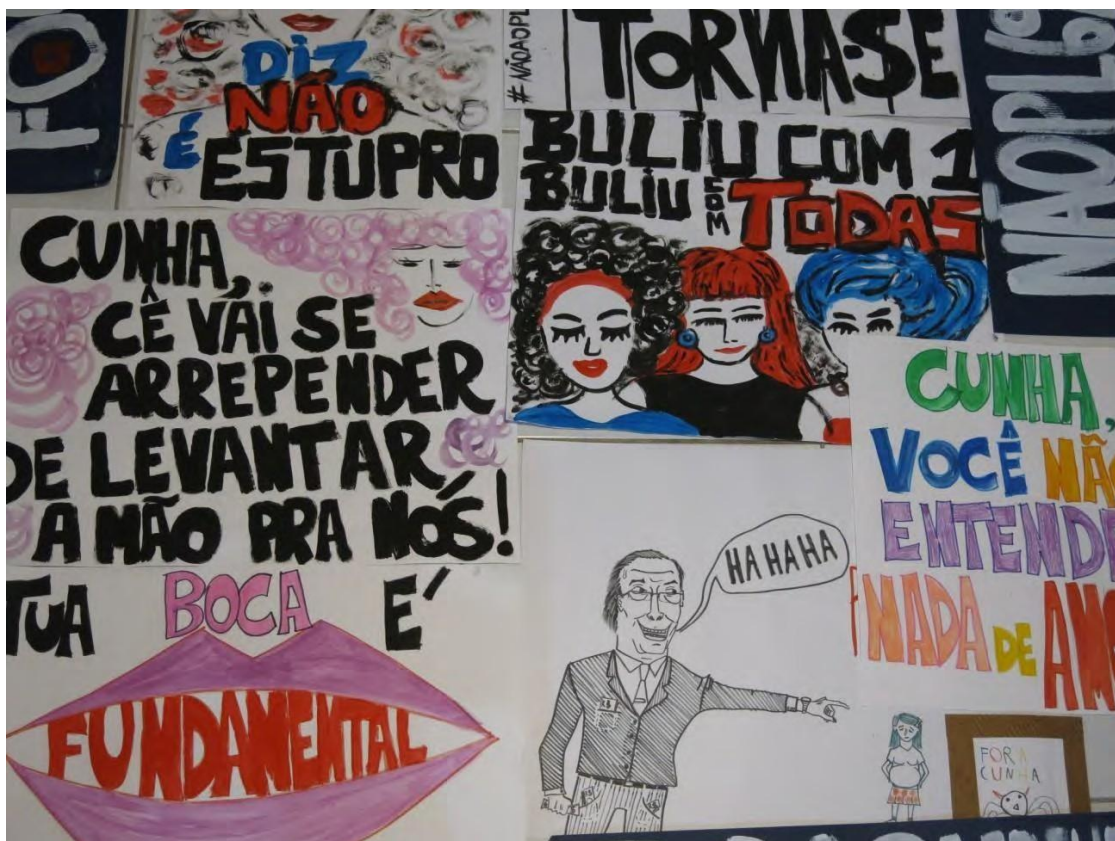 FO
DIZ
NÃO
É ESTUPRO
#NÃOAOPL
TORNA-SE
NAOPL
BULIU COM 1
BULIU COM TODAS
CUNHA,
CÊ VAI SE
ARREPENDER
DE LEVANTAR
A MÃO PRA NÓS!
CUNHA,
VOCÊ NÃO
ENTENDE
NADA DE AMO
TUA BOCA É
FUNDAMENTAL
HA HA HA
FORA
CUNHA